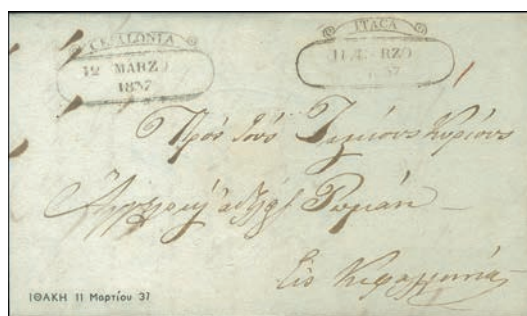 CEFALONIA
12 MARZO
1837
ITACA
11 RZO
37
Πρός τούς Τιμίους Κυρίους
Ρωμάν
Εις Κεφαλληνίαν
ΙΘΑΚΗ 11 Μαρτίου 37